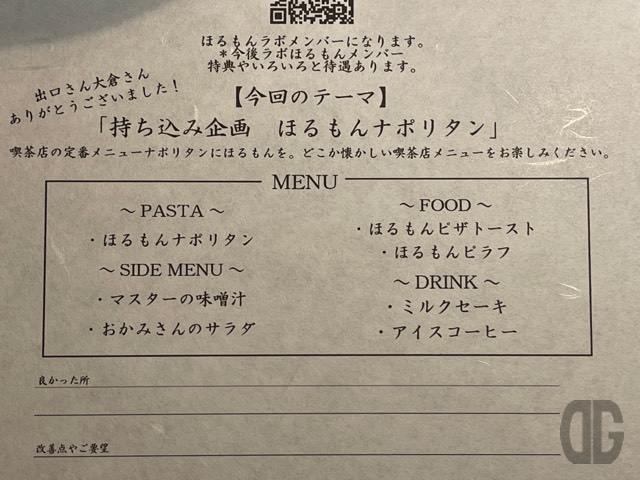 ほるもんラボメンバーになります。
＊今後ラボほるもんメンバー
特典やいろいろと待遇あります。
出口さん大倉さん
ありがとうございました！
【今回のテーマ】
「持ち込み企画　ほるもんナポリタン」
喫茶店の定番メニューナポリタンにほるもんを。どこか懐かしい喫茶店メニューをお楽しみください。
MENU
～ PASTA ～
・ほるもんナポリタン
～ SIDE MENU ～
・マスターの味噌汁
・おかみさんのサラダ
～ FOOD ～
・ほるもんピザトースト
・ほるもんピラフ
～ DRINK ～
・ミルクセーキ
・アイスコーヒー
良かった所
改善点やご要望
DG